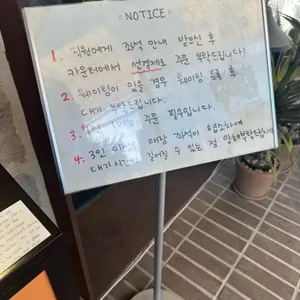 NOTICE
1. 직원에게 좌석 안내 받으신 후
카운터에서 선결제로 주문 부탁드립니다!
2. 웨이팅이 있을 경우 웨이팅 등록 후
대기 부탁드립니다.
3. 주문 필수입니다.
4. 3인 이상 매장 좌석이 협소하여
대기시간이 길어질 수 있는 점 양해부탁드립니다